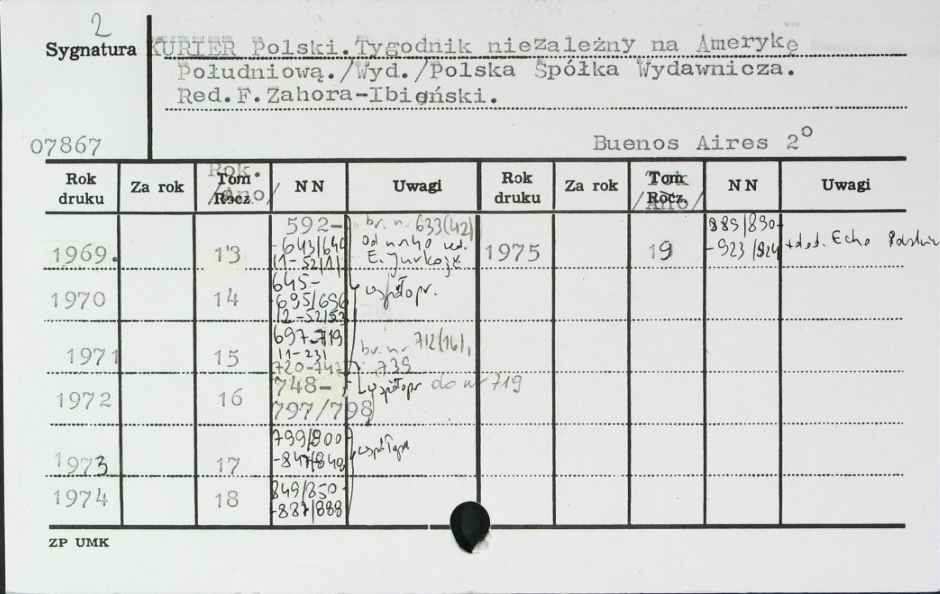 2
Sygnatura KURIER Polski. Tygodnik niezależny na Amerykę
Południową./Wyd./Polska Spółka Wydawnicza.
Red.F.Zahora-Ibiański.
07867 Buenos Aires 2°
Rok druku Za rok Tom Rocz. Rok. /Ano/ NN Uwagi Rok druku Za rok Tom Rocz. /Ano/ NN Uwagi
1969. 13 592-
-643/644
(1-52/1) br. nr 633(42)
Od nr 40 red.
E. Jurkojć
1975 19 889/890-
-923/924 + dod. Echo
1970 14 645-
-695/696
(2-52/53 współopr.
1971 15 697-719
(1-23)
720-747 br. nr 712(16),
739
1972 16 748-
797/798 współopr do nr 719
1973 17 799/800
-847/848 współopr
1974 18 849/850-
-887/888
ZP UMK